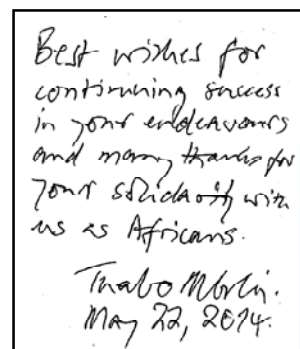 Best wishes for
continuing success
in your endeavours
and many thanks for
your solidarity with
us as Africans.
Thabo Mbeki.
May 22, 2014.